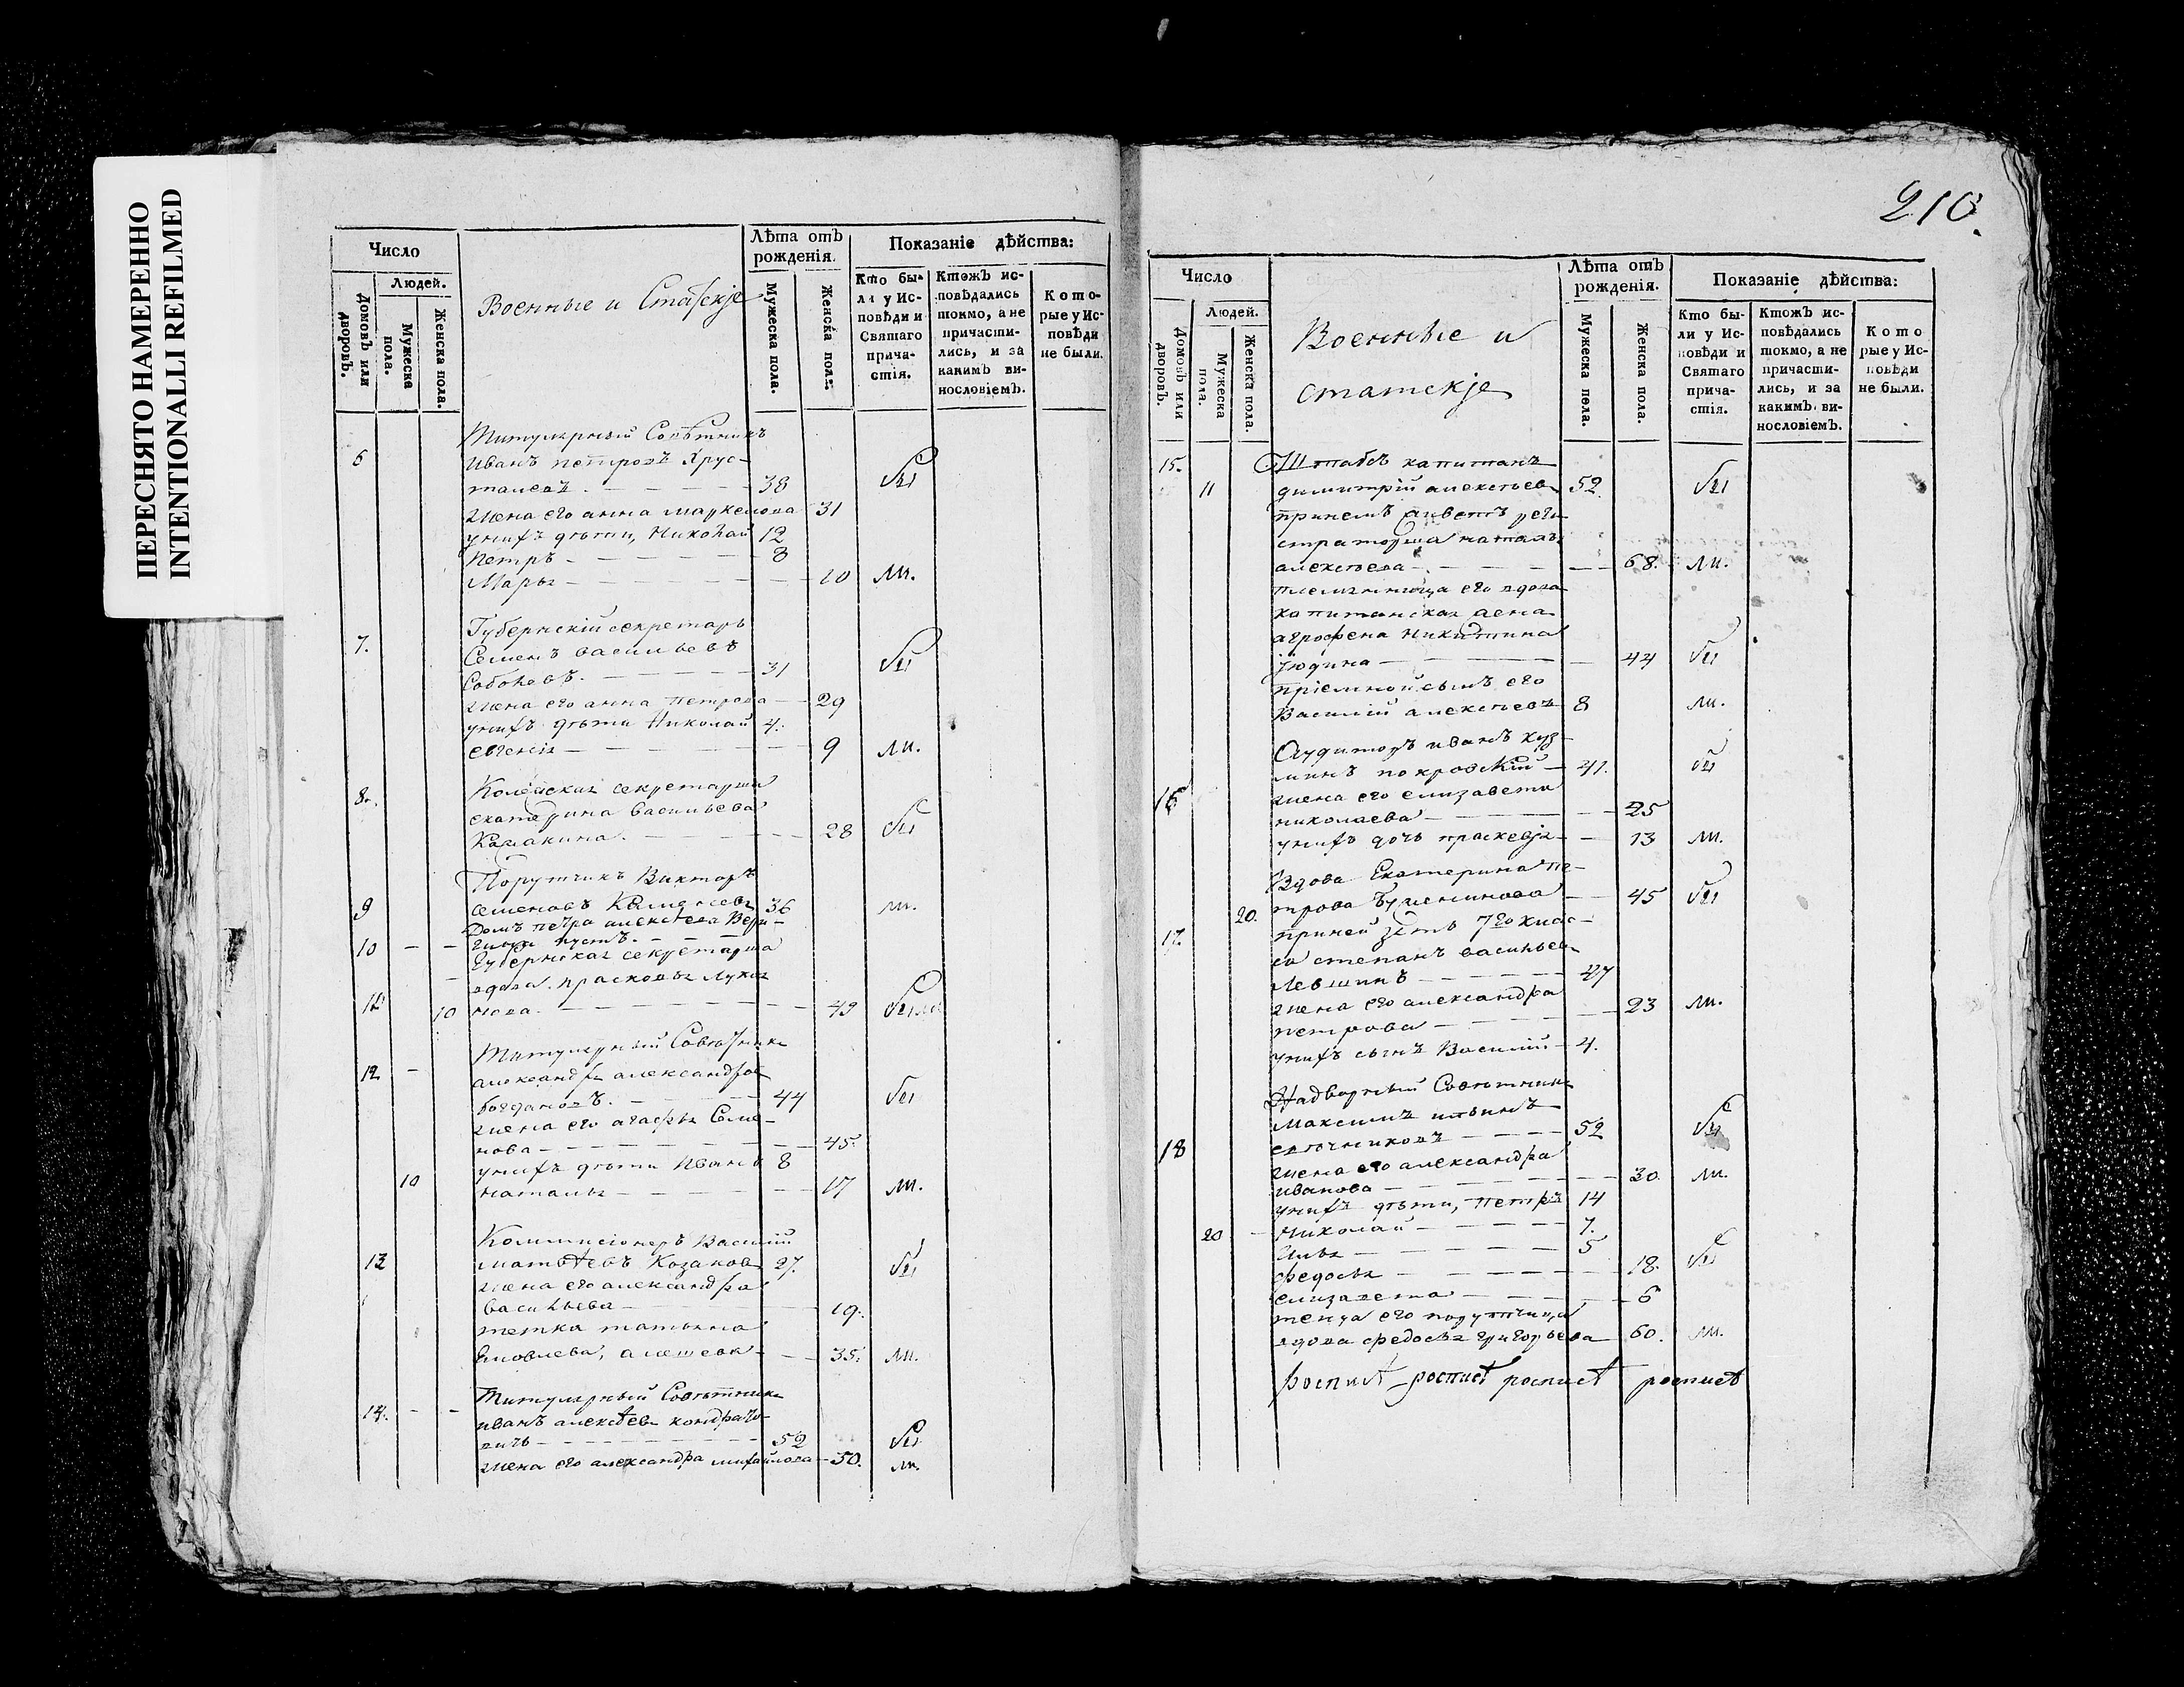 ПЕРЕСНЯТО НАМЕРЕННО
INTENTIONALLI REFILMED
Число
Людей.
Домовъ или дворовъ.
Мужеска пола.
Женска пола.
Военные и Статскіе
Лѣта отъ рожденія.
Мужеска пола.
Женска пола.
Показаніе дѣйства:
Кто были у Исповѣди и Святаго причастія.
Ктожъ исповѣдались токмо, а не причастились, и за какимъ винословіемъ.
Которые у Исповѣди не были.
Титулярный Совѣтникъ
6 иванъ петровъ Хрус-
талевъ. 38
жена его анна маркелова 31
унихъ дѣти, Николай 12
Петръ 8
Марья 10 ли.
Губернскій секретарь
7. Семенъ васильевъ
Соболевъ. 31
жена его анна петрова 29
унихъ дѣти Николай 4.
евгенія 9 ли.
8. секретарша
екатерина васильева
28
Порутчикъ Викторъ
9 семеновъ 36 ли.
Домъ петра алексѣева
10 пустъ.
Губернская секретарша
вдова прасковья
12 10 нова. 49
Титулярный Совѣтникъ
12 александръ александровъ
богдановъ. 44
жена его агафья Семе-
нова 45.
унихъ дѣти Иванъ 8
10 наталья 17 ли.
Коммисіонеръ Василій
13 матвѣевъ Козаковъ 27.
жена его александра
васильева 19.
тетка татьяна
35. ли.
Титулярный Совѣтникъ
14. иванъ алексѣевъ
52
жена его александра михайлова 50. ли.
210.
Число
Людей.
Домовъ или дворовъ.
Мужеска пола.
Женска пола.
Военные и
статскіе
Лѣта отъ рожденія.
Мужеска пола.
Женска пола.
Показаніе дѣйства:
Кто были у Исповѣди и Святаго причастія.
Ктожъ исповѣдались токмо, а не причастились, и за какимъ винословіемъ.
Которые у Исповѣди не были.
15. Штабсъ капитанъ
11 димитрій алексѣевъ 52.
принемъ реги-
страторша наталья
алексѣева 68. ли.
племянница его вдова
капитанская жена
агрофена никитина
юдина 44
пріемной сынъ его
Василій алексѣевъ 8 ли.
Аудиторъ иванъ куз-
минъ покровскій 41.
16 жена его елизавета
николаева 25
унихъ дочь праскевія 13 ли.
Вдова Екатерина пе-
20. трова 45
17. приней зять 7го клас-
са степанъ васильевъ
Левшинъ 27
жена его александра 23 ли.
петрова
унихъ сынъ Василій 4.
Надворный Совѣтникъ
Максимъ ильинъ
18 52
жена его александра
иванова 30. ли.
унихъ дѣти, Петръ 14
20 николай 7.
Илья 5
федосья 18.
елизавета 6
теща его порутчица
вдова федосья григорьева 60. ли.
роспист роспист роспист роспист